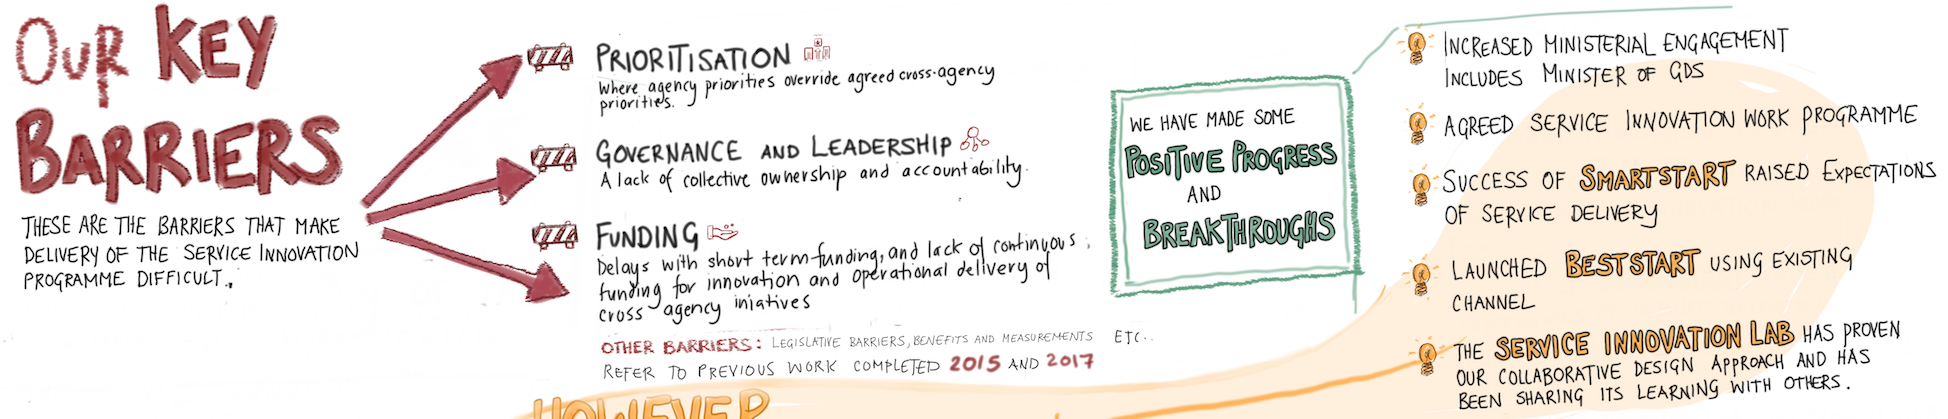 OUR KEY
BARRIERS
THESE ARE THE BARRIERS THAT MAKE
DELIVERY OF THE SERVICE INNOVATION
PROGRAMME DIFFICULT.
PRIORITISATION
where agency priorities override agreed cross-agency
priorities.
GOVERNANCE AND LEADERSHIP
A lack of collective ownership and accountability.
FUNDING
Delays with short term-funding, and lack of continuous
funding for innovation and operational delivery of
cross agency iniatives
OTHER BARRIERS: LEGISLATIVE BARRIERS, BENEFITS AND MEASUREMENTS ETC..
REFER TO PREVIOUS WORK COMPLETED 2015 AND 2017
HOWEVER
WE HAVE MADE SOME
POSITIVE PROGRESS
AND
BREAKTHROUGHS
INCREASED MINISTERIAL ENGAGEMENT
INCLUDES MINISTER OF GDS
AGREED SERVICE INNOVATION WORK PROGRAMME
SUCCESS OF SMARTSTART RAISED EXPECTATIONS
OF SERVICE DELIVERY
LAUNCHED BESTSTART USING EXISTING
CHANNEL
THE SERVICE INNOVATION LAB HAS PROVEN
OUR COLLABORATIVE DESIGN APPROACH AND HAS
BEEN SHARING ITS LEARNING WITH OTHERS.